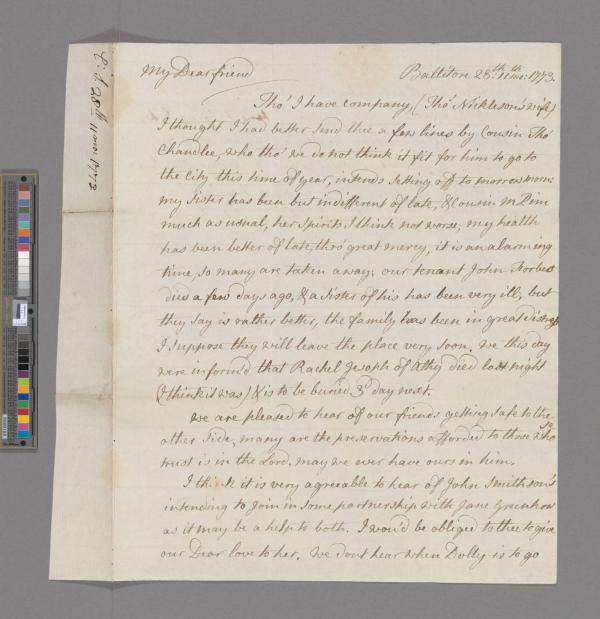 My Dear friend Ballitore 28th: 11th mo: 1773.
Tho' I have company, (Thos Nickleson's wife)
I thought I had better send thee a few lines by Cousin Tho:
Chandlee, who tho' we do not think it fit for him to go to
the City this time of year, intends setting off to morrow morn:
my Sister has been but indifferent of late, & Cousin m Pim
much as usual, her Spirits I think not worse; my health
has been better of late, thro' great mercy, it is an alarming
time, so many are taken away; our tenant John Forbes
died a few days ago, & a Sister of his has been very ill, but
they say is rather better, the family has been in great distress
I suppose they will leave the place very soon. We this day
were inform'd that Rachel Jesoph of Athy died last night
(I think it was) & is to be buried 3d day next.
We are pleased to hear of our friends getting safe to the
other side, many are the preservations afforded to those who
trust is in the Lord, may we ever have ours in him.
I think it is very agreeable to hear of John Smithson's
intending to Join in some partnership with Jane Greenhow
as it may be a help to both. I wou'd be obliged to thee to give
our Dear love to her. We dont hear when Dolly is to go
28th 11 mo: 1773